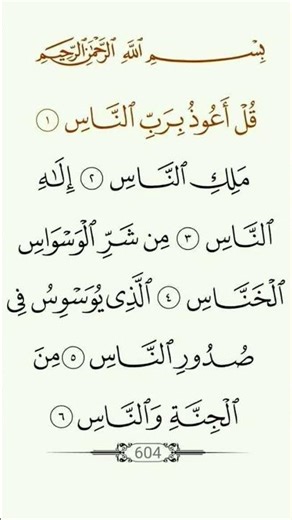 بِسْمِ اللَّهِ الرَّحْمَٰنِ الرَّحِيمِ
قُلْ أَعُوذُ بِرَبِّ ٱلنَّاسِ ١
مَلِكِ ٱلنَّاسِ ٢ إِلَٰهِ
ٱلنَّاسِ ٣ مِن شَرِّ ٱلْوَسْوَاسِ
ٱلْخَنَّاسِ ٤ ٱلَّذِى يُوَسْوِسُ فِى
صُدُورِ ٱلنَّاسِ ٥ مِنَ
ٱلْجِنَّةِ وَٱلنَّاسِ ٦
604